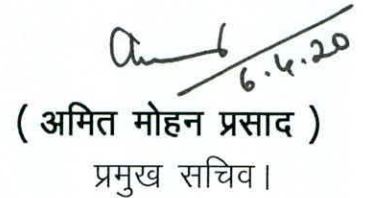 6.4.20
( अमित मोहन प्रसाद )
प्रमुख सचिव।